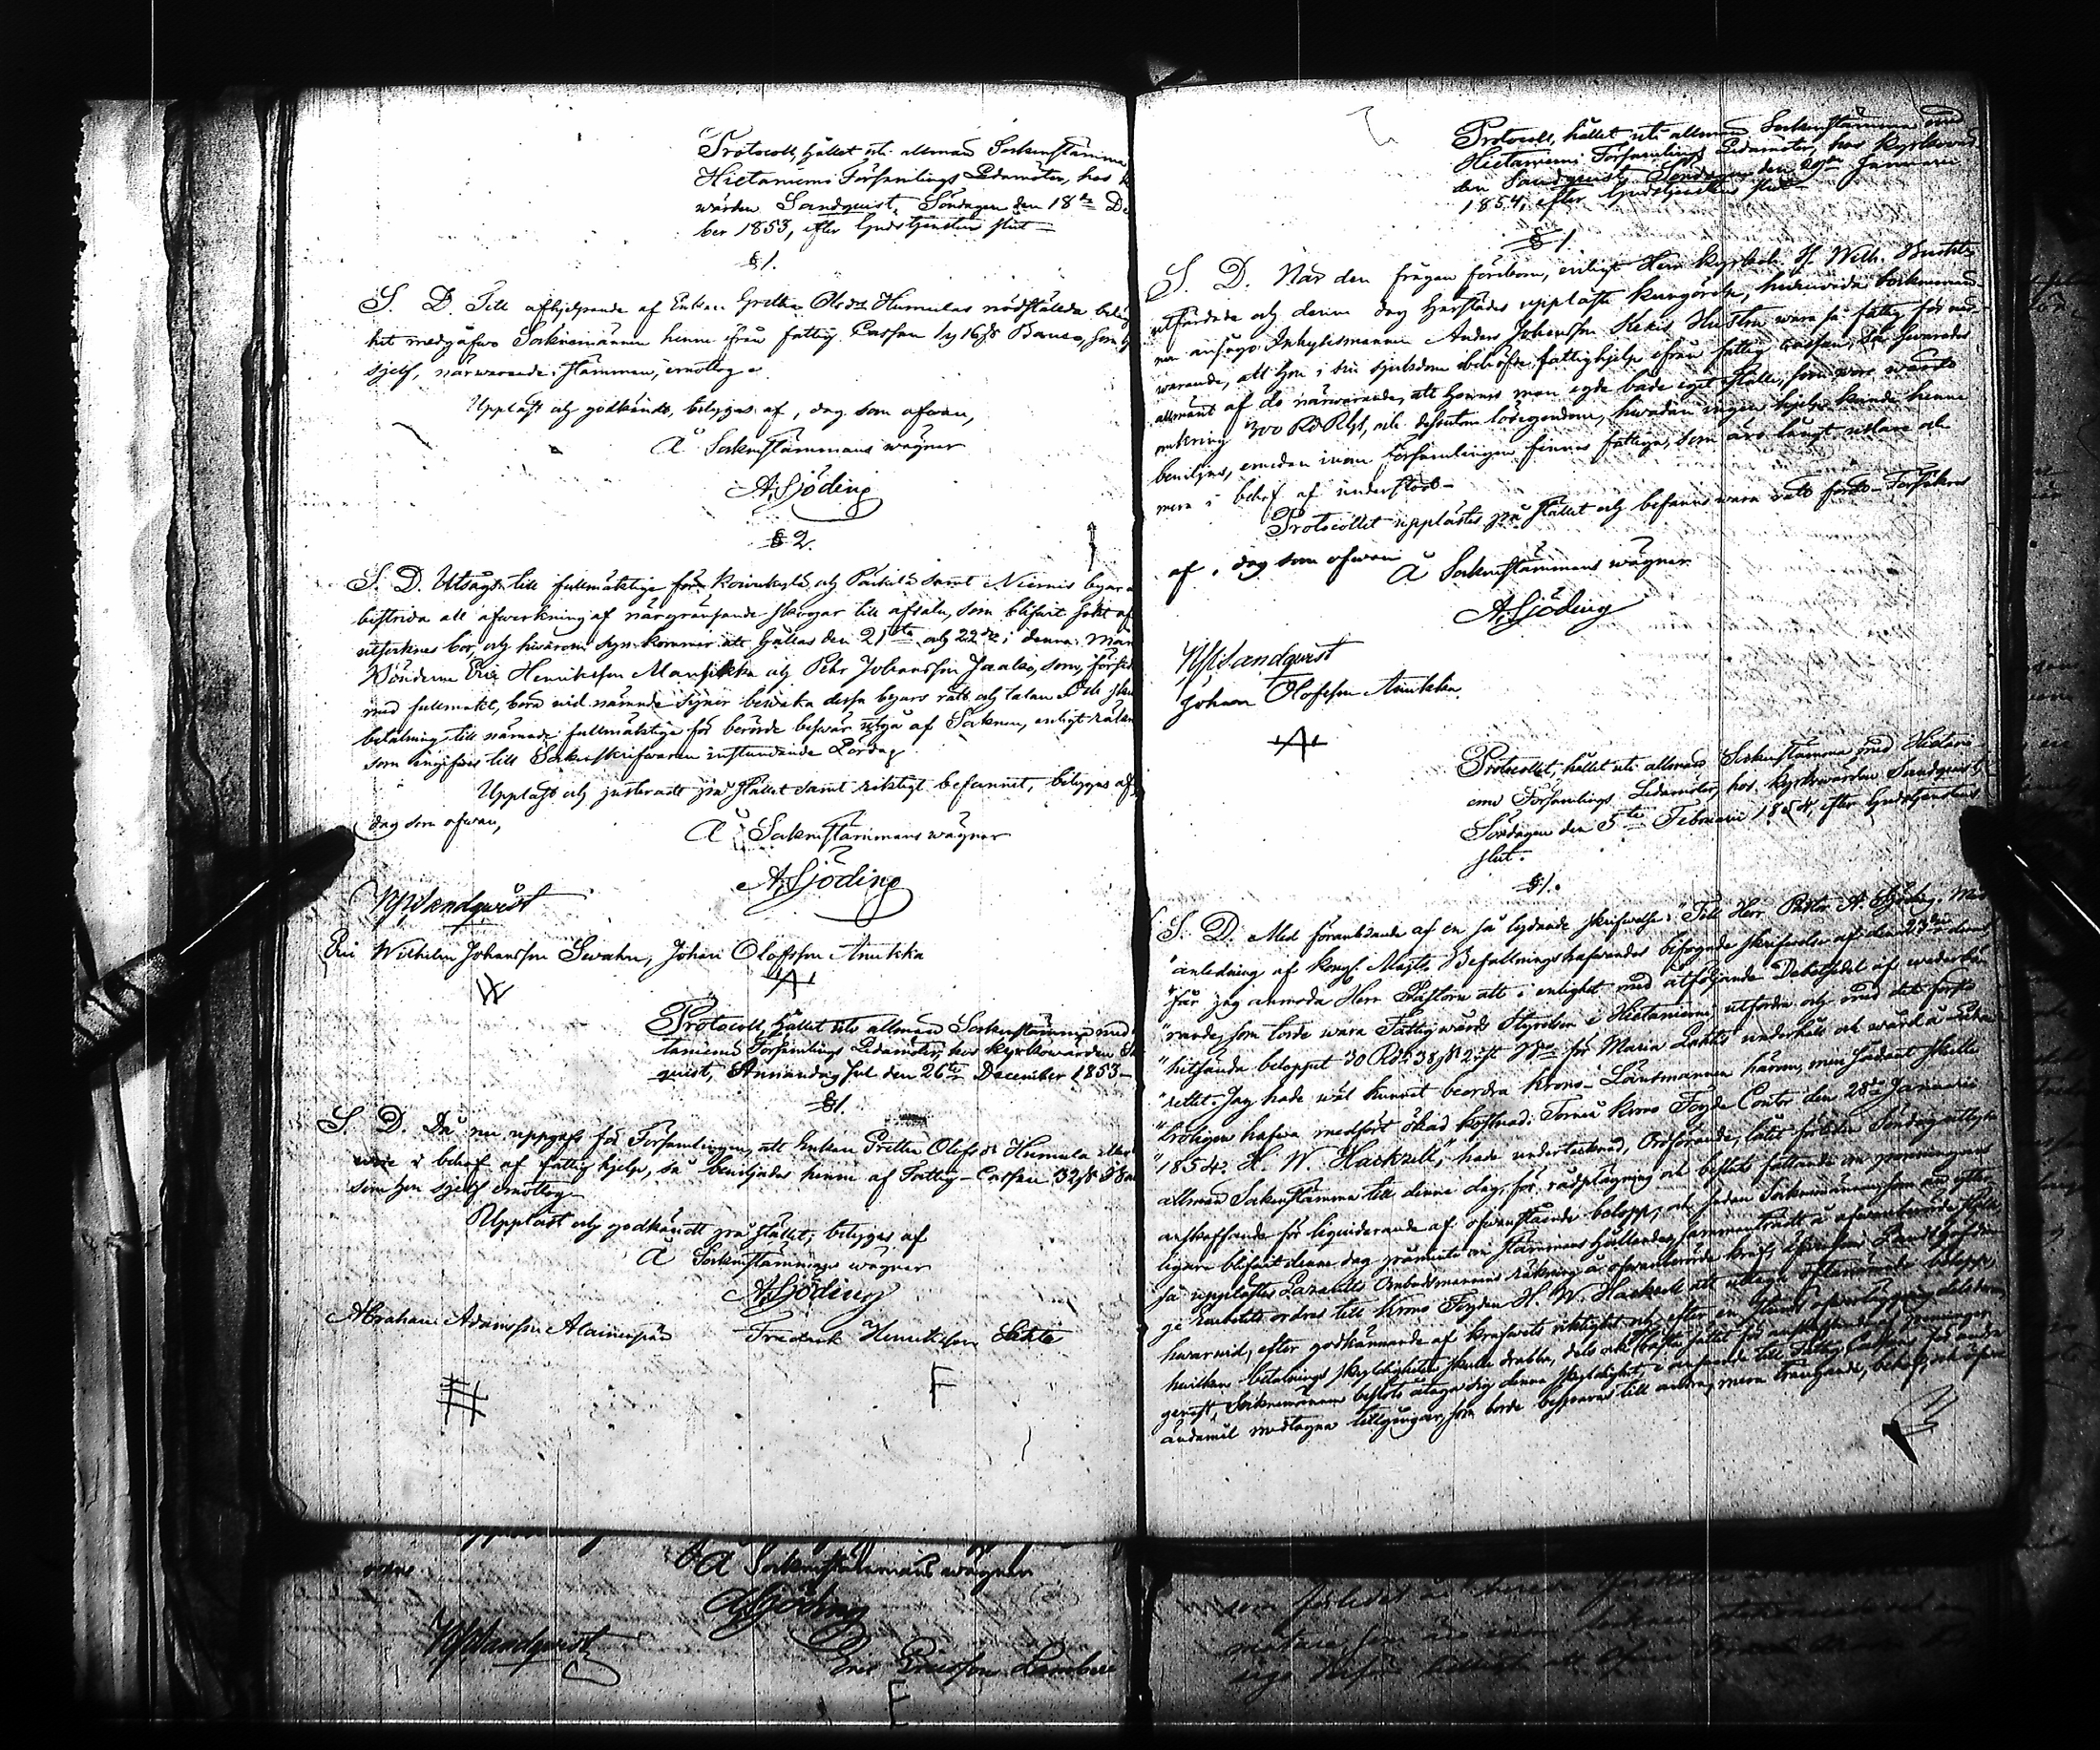 Protocoll, hållet uti allmän Sockenstämma
Hietaniemi Församlings Ledamöter, hos
wärden Sandquist, Söndagen den 18de De
ber 1853, efter Gudstjenstens slut
§ 1.
S. D. Till afhjelpande af Enkan Gretha Olsdr Humulas nödstälda belä
het medgåfwo Socknemännen henne ifrån fattig Cassan 16 s Banco, som
sjelf, närwarande i stämman, emottog
Uppläst och godkändt, betygar, dag som ofwan,
Å Sockenstämmans wägnar
A. Sjöding
§ 2.
S. D. Utsågs till fullmäktige för Koiwukylä och Päckilä samt Niemis byar
bestrida all afwerkning af närgränsande skogar till afsalu, som blifwit sökt af
utsocknes bor, och hwarom syn kommer att hållas den 21sta och 22dra i denna Mån
Bönderne Eric Henriksson Mansikka och Pehr Johansson Jaako, som, försed
med fullmakt, böra wid nämnde syner bewaka dessa byars rätt och talan Och skulle
betalning till nämnde fullmäktige för berörde beswär utgå af Socknen, enligt räkn
som ingifwes till Sockenskrifwaren instundande Lördag
Uppläst och justeradt på stället samt riktigt befunnet, betygas af
dag som ofwan,
Å Sockenstämmans wägnar
A. Sjöding
Sandquist
Eric Wilhelm Johansson Swahn, Johan Olofsson Anukka
Protocoll, hållet uti allmän Sockenstämma med
taniemi Församlings Ledamöter, hos Kyrkowärden
quist, Annandag Jul den 26te December 1853
§ 1.
S. D. Då nu uppgafs för Församlingen, att Enkan Gretha Olofsdr Humula
wore i behof af fattighjelp, så beviljades henne af Fattig-Cassan 32 s
som hon sjelf emottog
Uppläst och godkändt på stället, betygas af
Å Sockenstämmans wägnar
A. Sjöding
Abraham Adamsson Alainenpää Fredrick Henriksson Lahte
F
Å Sockenstämmans wägnar
A Sjöding
Sandquist
Eric Ericsson Lamberi
F
Protocoll, hållet uti allmän Sockenstämma med
Hietaniemi Församlings Ledamöter, hos Kyrkowär
den Sandquist Söndagen den 29de Januarii
1854, efter Gudstjenstens slut
§ 1.
S. D. När den frågan förekom, enligt Herr Kyrkoh. H. Wilh.
utfärdade och denna dag härstädes uppläste kungörelse, huruwida Socknemän
nen ansågo Inhyhesmannen Anders Johansson Kekis Hustru wara så fattig för när
warande, att hon i sin sjukdom behöfde fattighjelp ifrån fattig Cassan, Så swarades
allmänt af de närwarande, att hennes man egde både eget ställe, som wore wärdt
omkring 300 Rd Rgs, och dessutom lösegendom, hwadan ingen hjelp kunde henne
bewiljas, emedan inom Församlingen finnes fattiga, som äro långt uslare och
mera i behof af understöd
Protocollet upplästes på stället och befanns wara rätt fördt - Försäkras
af, dag som ofwan
Å Sockenstämmans wägnar
A. Sjöding
Sandquist
Johan Olofsson Anukka
Protocollet, hållet uti allmän Sockenstämma med Hietani
emi Församlings Ledamöter, hos Kyrkowärden Sandquist
Söndagen den 5te Februarii 1854, efter Gudstjenstens
slut.
§ 1.
S. D. Med föranledande af en så lydande skrifwelse: "Till Herr Pastor A. Sjöding. Med
"anledning af Kongl. Majts Befallningshafwandes bifogade skrifwelse af den 23
"får jag anmoda Herr Pastorn att i enlighet med åtföljande Debetsedel af wederbö
"rande, som torde wara Fattigwårds Styrelsen i Hietaniemi, utfordra och med det första
"hitsända beloppet 30 Rdr 38 s 2 rst Bco för Maria Lahtis underhåll och wård å Laza
"rettet. Jag hade wäl kunnat beordra Krono-Länsmannen härom, men sådant skulle
"troligen hafwa medfört ökad kostnad. Torneå Krono Fogde Contor den 28de Januarii
"1854. H. W. Hackzell," hade undertecknad, Ordförande, låtit förliden Söndag utlysa
allmän Sockenstämma till denna dag, för rådplägning och besluts fattande om penningars
anskaffande för liquiderande af ofwanstående belopp, och sedan Socknemännen, som än ytter
ligare blifwit denna dag påminte om stämmans hållande, sammanträdt å ofwannämnde ställe,
så upplästes Lazaretts Ombudsmannens räkning å ofwanberörde kraf,
ge Embetets ordres till Krono Fogden H. W. Hackzell att uttaga oftanämnde belopp,
hwarwid, efter godkännande af krafwets riktighet och efter en stunds öfwerläggning dels om
hwilken betalnings skyldigheten skulle drabba, dels och bästa sättet för anskaffandet af penningar
genast, Socknemännen beslöto åtaga sig denna skyldighet, i anseende till Fattig Cassans för andra
ändamål medtagna tillgångar, som borde besparas till andra, mera trängande, behof, och